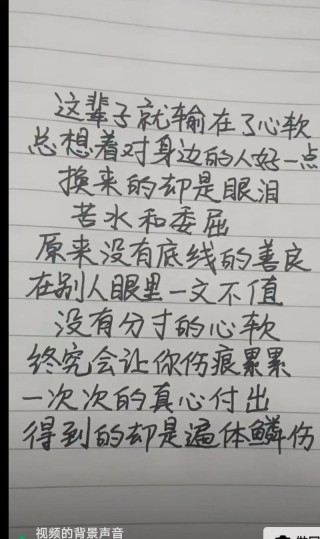 这辈子就输在了心软
总想着对身边的人好一点
换来的却是眼泪
苦水和委屈
原来没有底线的善良
在别人眼里一文不值
没有分寸的心软
终究会让你伤痕累累
一次次的真心付出
得到的却是遍体鳞伤
视频的背景声音